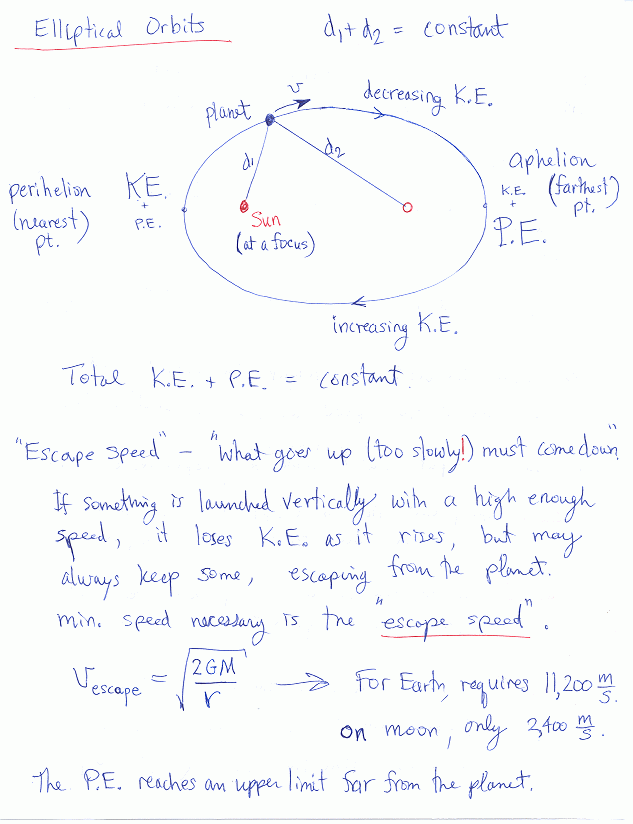 Elliptical Orbits
d₁ + d₂ = constant
v
decreasing K.E.
planet
d₁
d₂
aphelion
(farthest)
pt.
K.E.
+
P.E.
perihelion
(nearest)
pt.
KE.
+
P.E.
Sun
(at a focus)
increasing K.E.
Total K.E. + P.E. = constant.
"Escape Speed" – "What goes up (too slowly!) must come down"
If something is launched vertically with a high enough
speed, it loses K.E. as it rises, but may
always keep some, escaping from the planet.
min. speed necessary is the "escape speed".
Vescape = √(2GM/r) → For Earth, requires 11,200 m/s.
on moon, only 2,400 m/s.
The P.E. reaches an upper limit far from the planet.